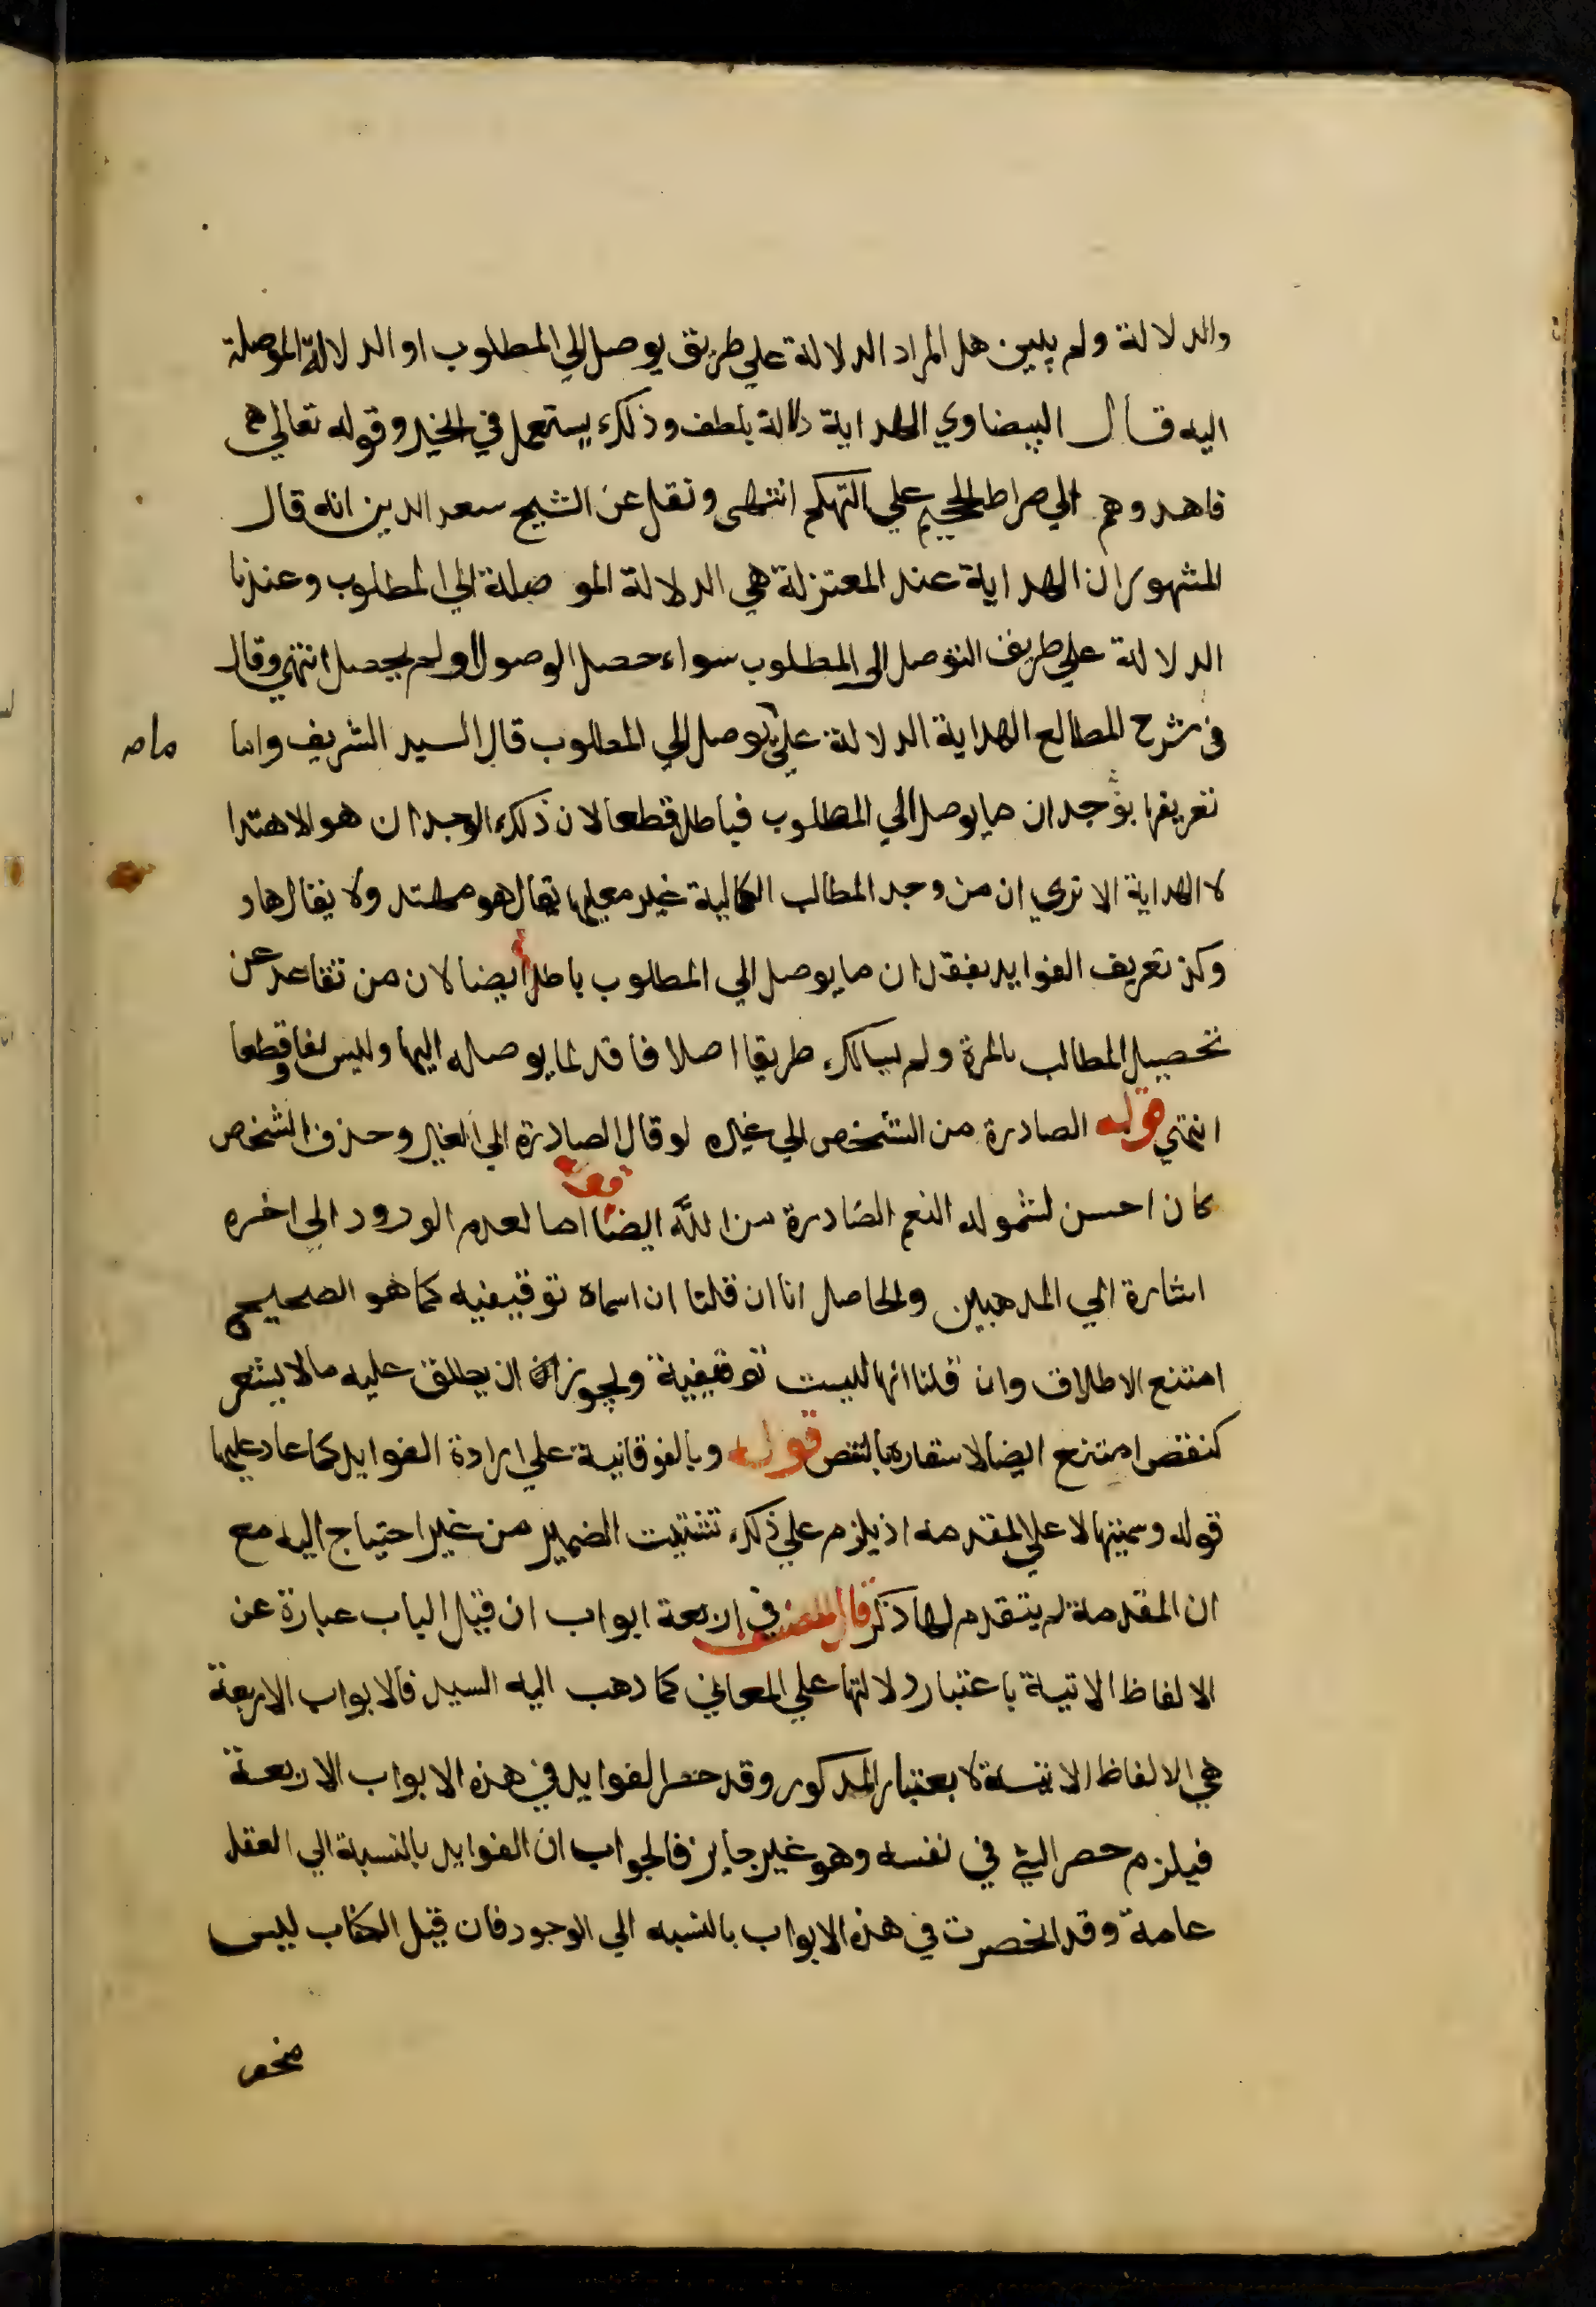 والدلالة ولم يبين هل المراد الدلالة علي طريق يوصل الي المطلوب او الدلالة الموصلة
اليه قال البيضاوي الهداية دلالة بلطف وذلك يستعمل في الخير وقوله تعالي
فاهدوهم الي صراط الجحيم علي التهكم انتهى ونقل عن الشيخ سعد الدين انه قال
المشهور ان الهداية عند المعتزلة هي الدلالة الموصلة الي المطلوب وعندنا
الدلالة علي طريق التوصل الى المطلوب سواء حصل الوصول اولم يحصل انتهي وقال
في شرح المطالع الهداية الدلالة علي يوصل الي المطلوب قال السيد الشريف واما
ما صـ
تعريفها بوجدان ما يوصل الي المطلوب فباطل قطعا لان ذلك الوجدان هو الاهتدا
لا الهداية الا تري ان من وجد المطالب العالية غير معلمها يقال هو مهتد ولا يقال هاد
وكذ تعريف الفوايد بفقدان ما يوصل الي المطلوب باطل ايضا لان من تقاعد عن
تحصيل المطالب بالمرة ولم يسالك طريقا اصلا فاقد لما يوصله اليها وليس قطعا
انتهي قوله الصادرة من الشخص الي غيره لو قال الصادرة الي الغير وحذف الشخص
كان احسن لشموله النعم الصادرة من الله ايضا اما لعدم الورود الي اخره
اشارة الي المدهبين والحاصل انا ان قلنا ان اسماه توقيفيه كما هو الصحيح
امتنع الاطلاق وان قلنا انها ليست توقيفية ويجوز ان يطلق عليه مالا يشعر
كنقص امتنع ايضا لاشعاره بالنقص قوله وبالفوقانية علي ارادة الفوايد كما عاد عليها
قوله وسميتها لا علي المقدمه اذ يلزم علي ذلك تشتيت الضمير من غير احتياج اليه مع
ان المقدمة لم يتقدم لها ذكر قال المصنف في اربعة ابواب ان قيل الباب عبارة عن
الالفاظ الاتية باعتبار دلالتها علي المعاني كما دهب اليه السيد فالابواب الاربعة
هي الالفاظ الاتية لا بعتبار المدكور وقد حصر الفوايد في هذه الابواب الاربعة
فيلزم حصر الشي في نفسه وهو غير جايز فالجواب ان الفوايد بالنسبة الي العقل
عامة وقد انحصرت في هذه الابواب بالنسبه الي الوجود فان قيل الكتاب ليس
منحصر